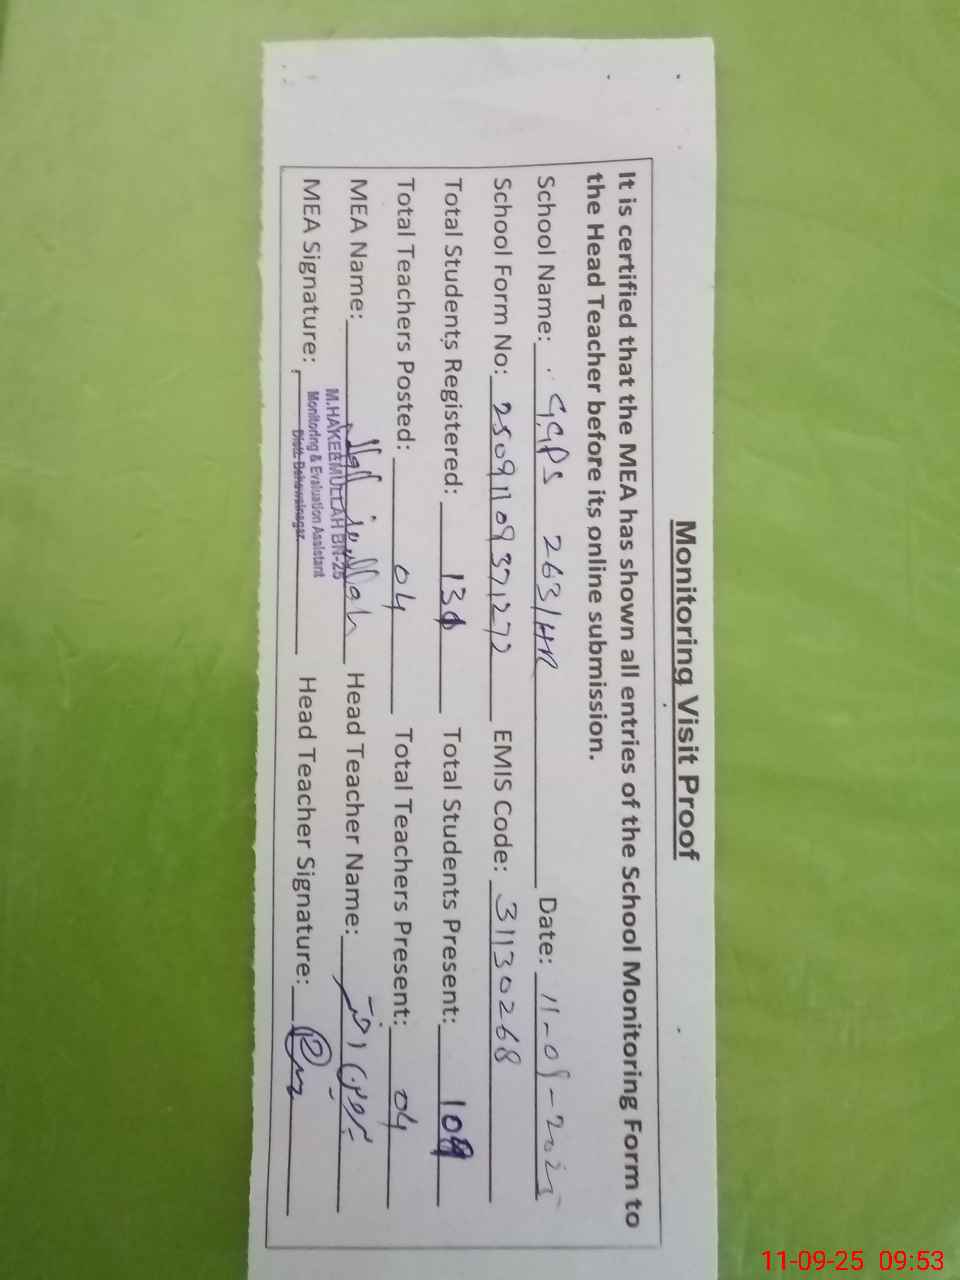 Monitoring Visit Proof
It is certified that the MEA has shown all entries of the School Monitoring Form to
the Head Teacher before its online submission.
School Name: GGPS 263/HR Date: 11-09-2025
School Form No: 2509110937272 EMIS Code: 31130268
Total Students Registered: 130 Total Students Present: 109
Total Teachers Posted: 04 Total Teachers Present: 04
MEA Name: Head Teacher Name:
M.HAKEEMULLAH BN-25
Monitoring & Evaluation Assistant
Distt. Bahawalnagar.
MEA Signature: Head Teacher Signature:
11-09-25 09:53